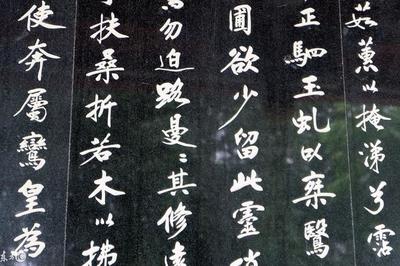 茹蕙以掩涕兮霑
正駟玉虬以椉鷖
圃欲少留此靈
勿迫路曼〻其修遠
乎扶桑折若木以拂
使奔屬鸞皇為